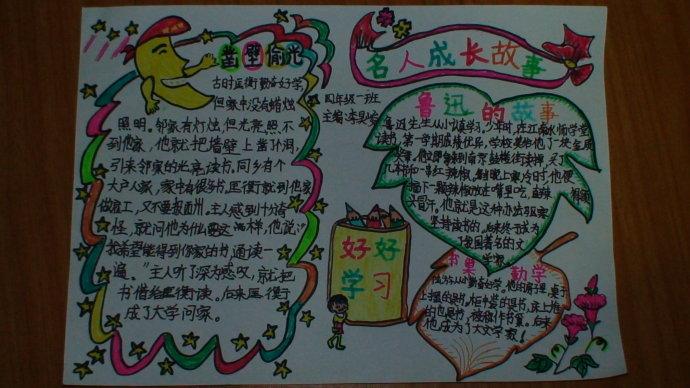 凿壁偷光
古时匡衡勤奋好学,
但家中没有蜡烛
照明。邻家有灯烛,但光亮照不
到他家,他就把墙壁上凿个洞,
引来邻家的光亮读书。同乡有个
大户人家,家中有很多书。匡衡就到他家
做雇工,又不要报酬。主人感到十分奇
怪,就问他为什么要这样,他说:“
我希望能得到你家的书,通读一
遍。”主人听了深为感叹,就把
书借给匡衡读。后来匡衡
成了大学问家。
名人成长故事
四年级一班
主编:李
鲁迅的故事
鲁迅先生从小认真学习。少年时,在江南水师学堂
读书,第一学期成绩优异,学校奖给他了一块金质
奖章。他立即拿到南京鼓楼街头卖掉,买了
几本书和一串红辣椒。每当晚上寒冷时,他便
摘下一颗辣椒,放在嘴里吃,直辣
汗。他就是这种办法驱寒
坚持读书的。后来终于成为
我国著名的文
学家
好好
学习
书巢 勤学
陆游从小勤奋好学。他的房子里,桌子
上摆的是书,柜中装的是书,床上堆
的也是书,被称作书巢。后来
他成为了大文学家!